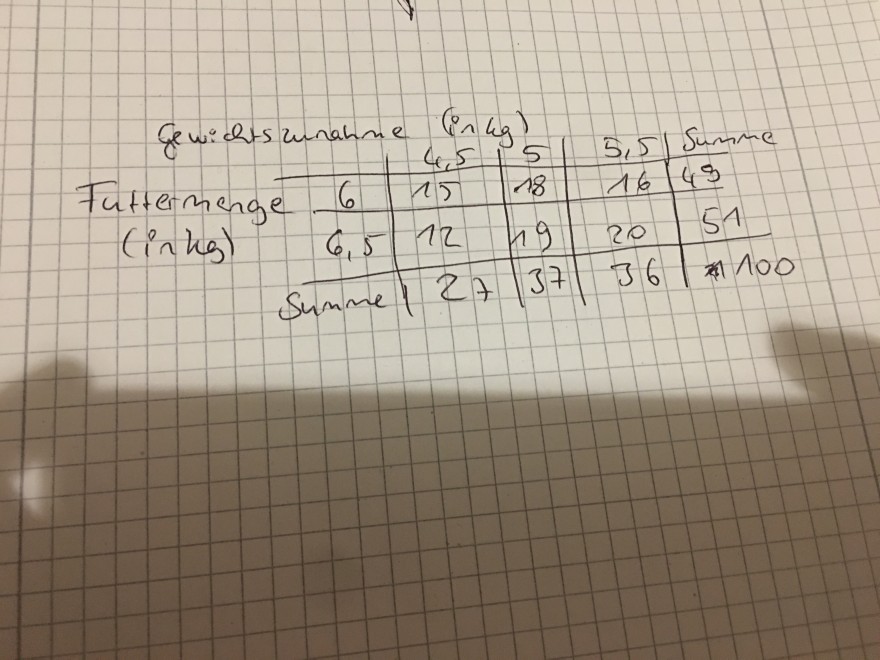 Gewichtszunahme (in kg)
4,5 5 5,5 Summe
Futtermenge 6 15 18 16 49
(in kg) 6,5 12 19 20 51
Summe 27 37 36 100